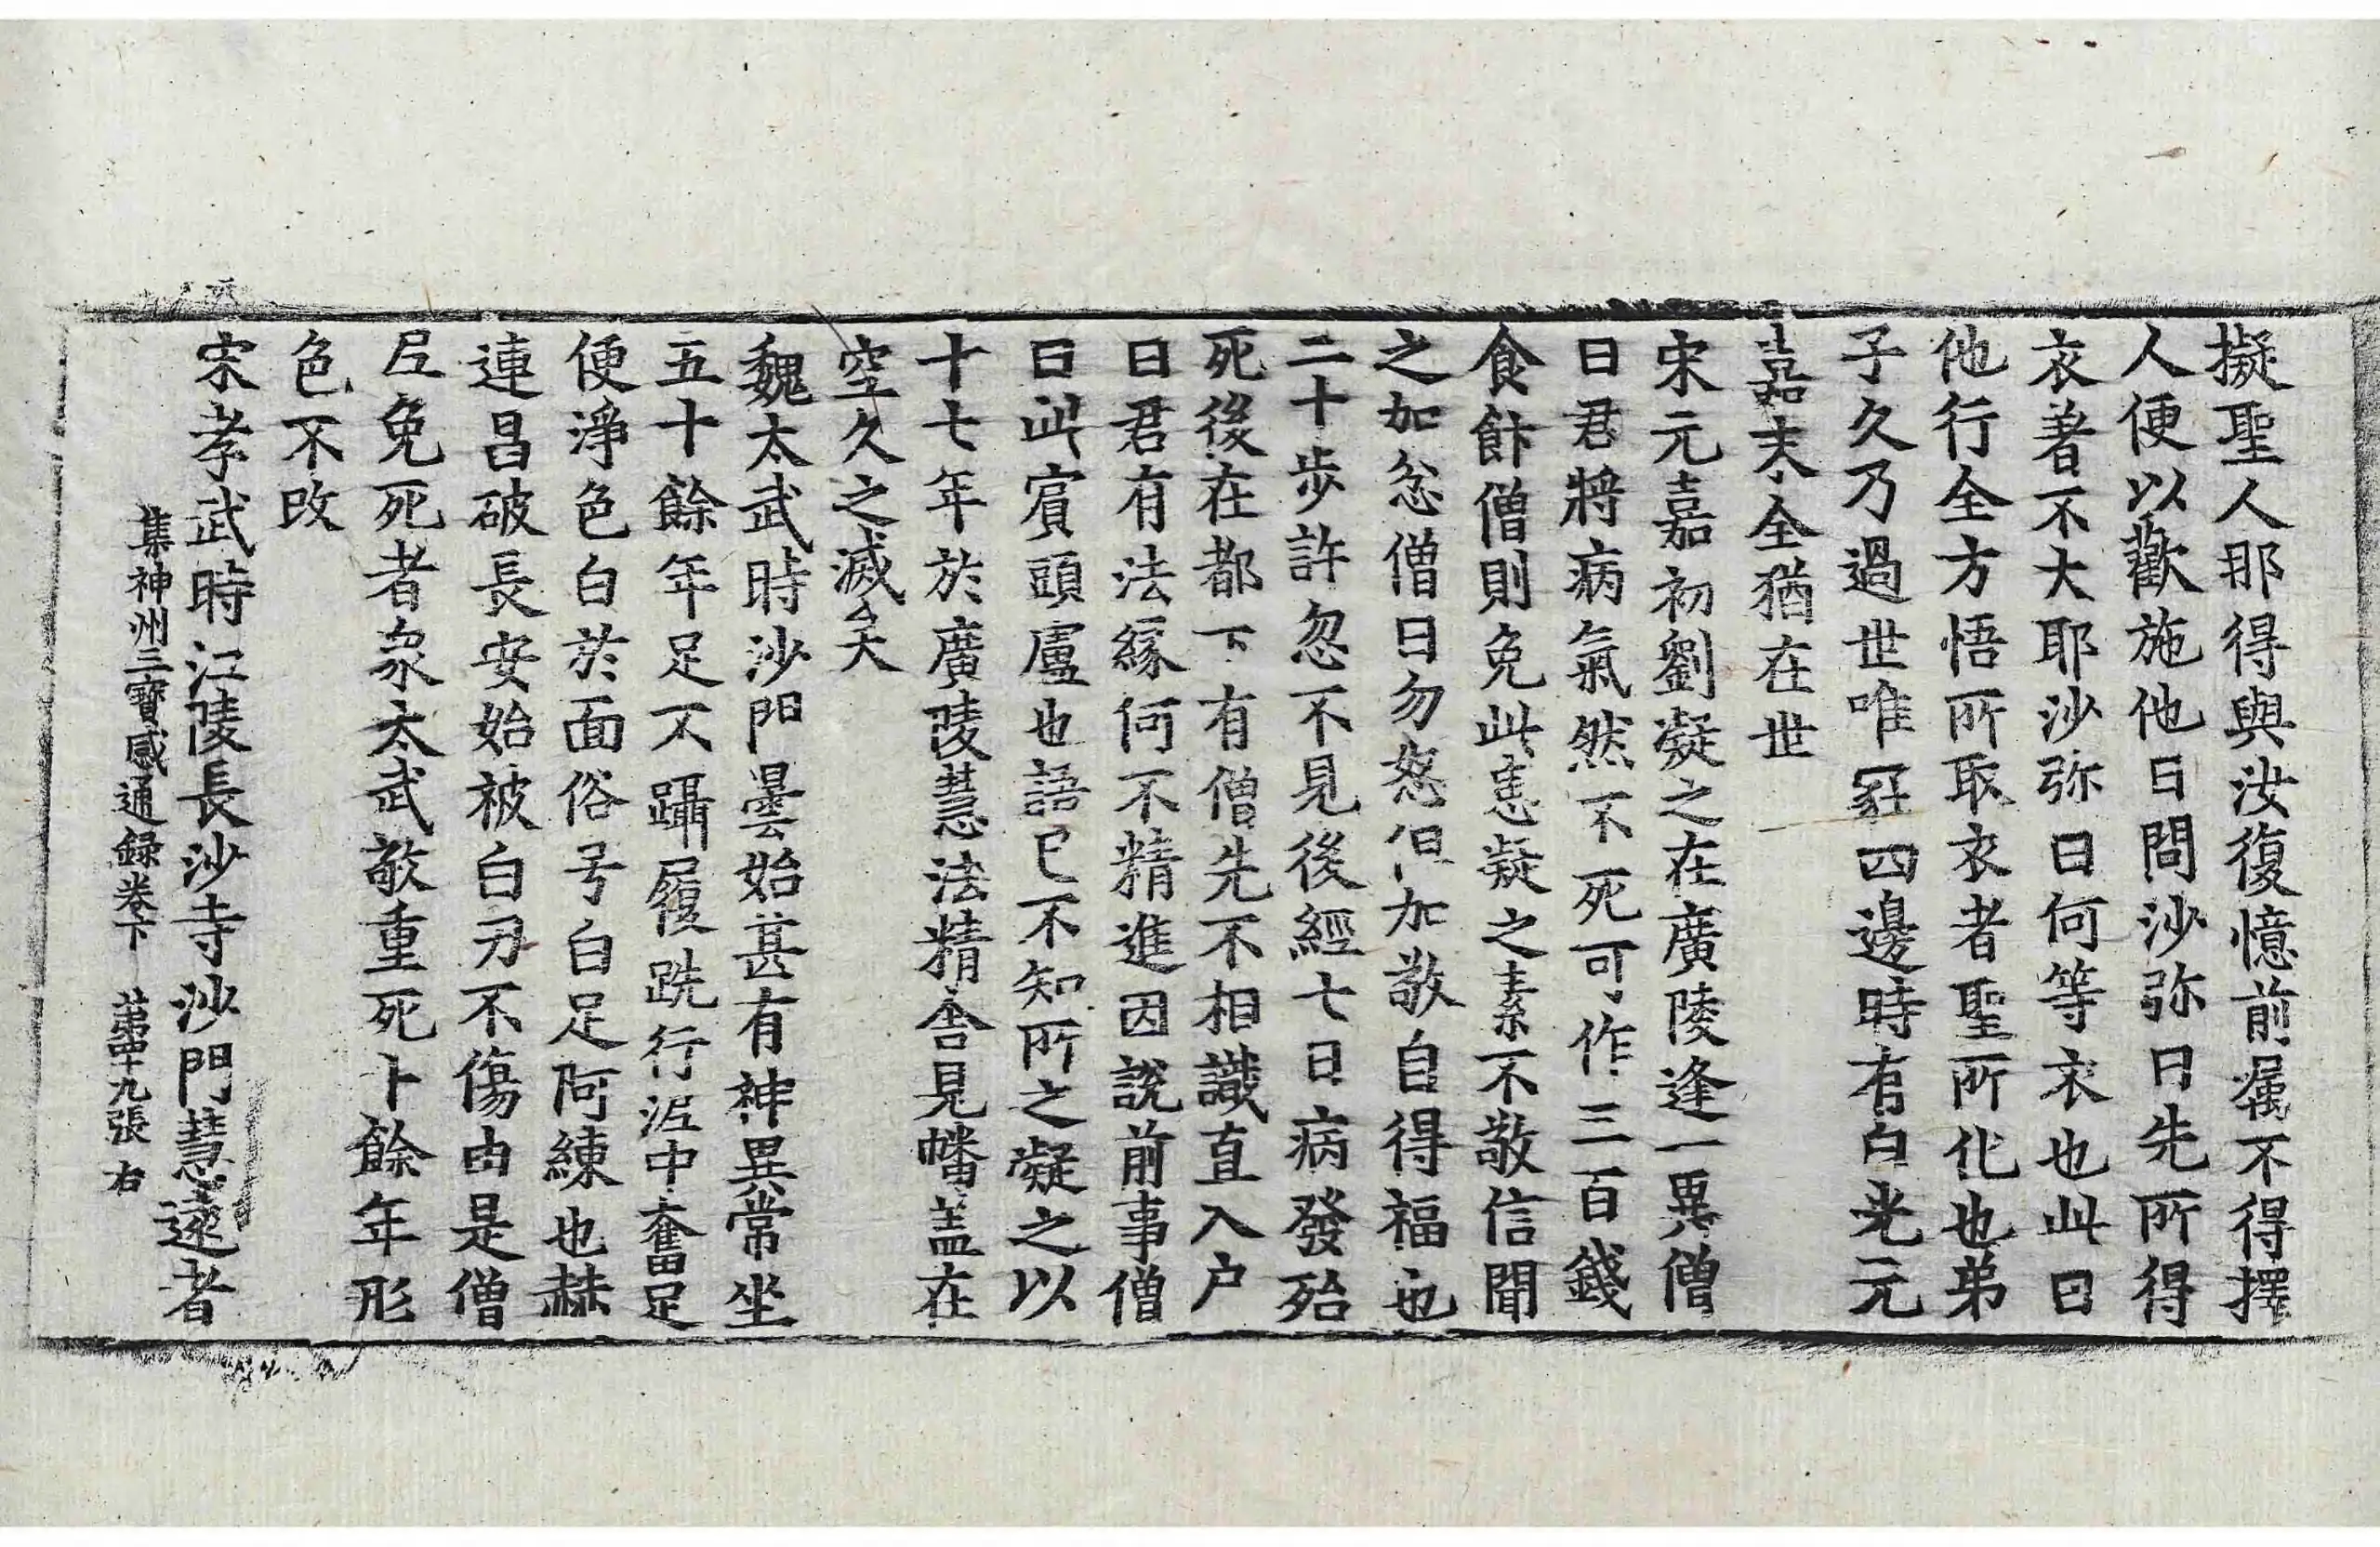 擬聖人那得與汝復憶前囑不得擇
人便以歡施他日問沙弥曰先所得
衣著不大耶沙弥曰何等衣也此曰
他行全方悟所取衣者聖所化也弟
子久乃過世唯冢四邊時有白光元
嘉末全猶在世
宋元嘉初劉凝之在廣陵逢一異僧
曰君將病氣然不死可作三百錢
食飰僧則免此恚凝之素不敬信聞
之加忿僧曰勿怒但加敬自得福也
二十步許忽不見後經七日病發殆
死後在都下有僧先不相識直入户
曰君有法緣何不精進因說前事僧
曰此賔頭盧也語已不知所之凝之以
十七年於廣陵慧法精舎見幡盖在
空久之滅矣
魏太武時沙門曇始甚有神異常坐
五十餘年足不躡履跣行泥中奮足
便淨色白於面俗号白足阿練也赫
連昌破長安始被白刃不傷由是僧
尼免死者衆太武敬重死十餘年形
色不改
宋孝武時江陵長沙寺沙門慧遠者
集神州三寳感通録卷下 苐四十九張 右